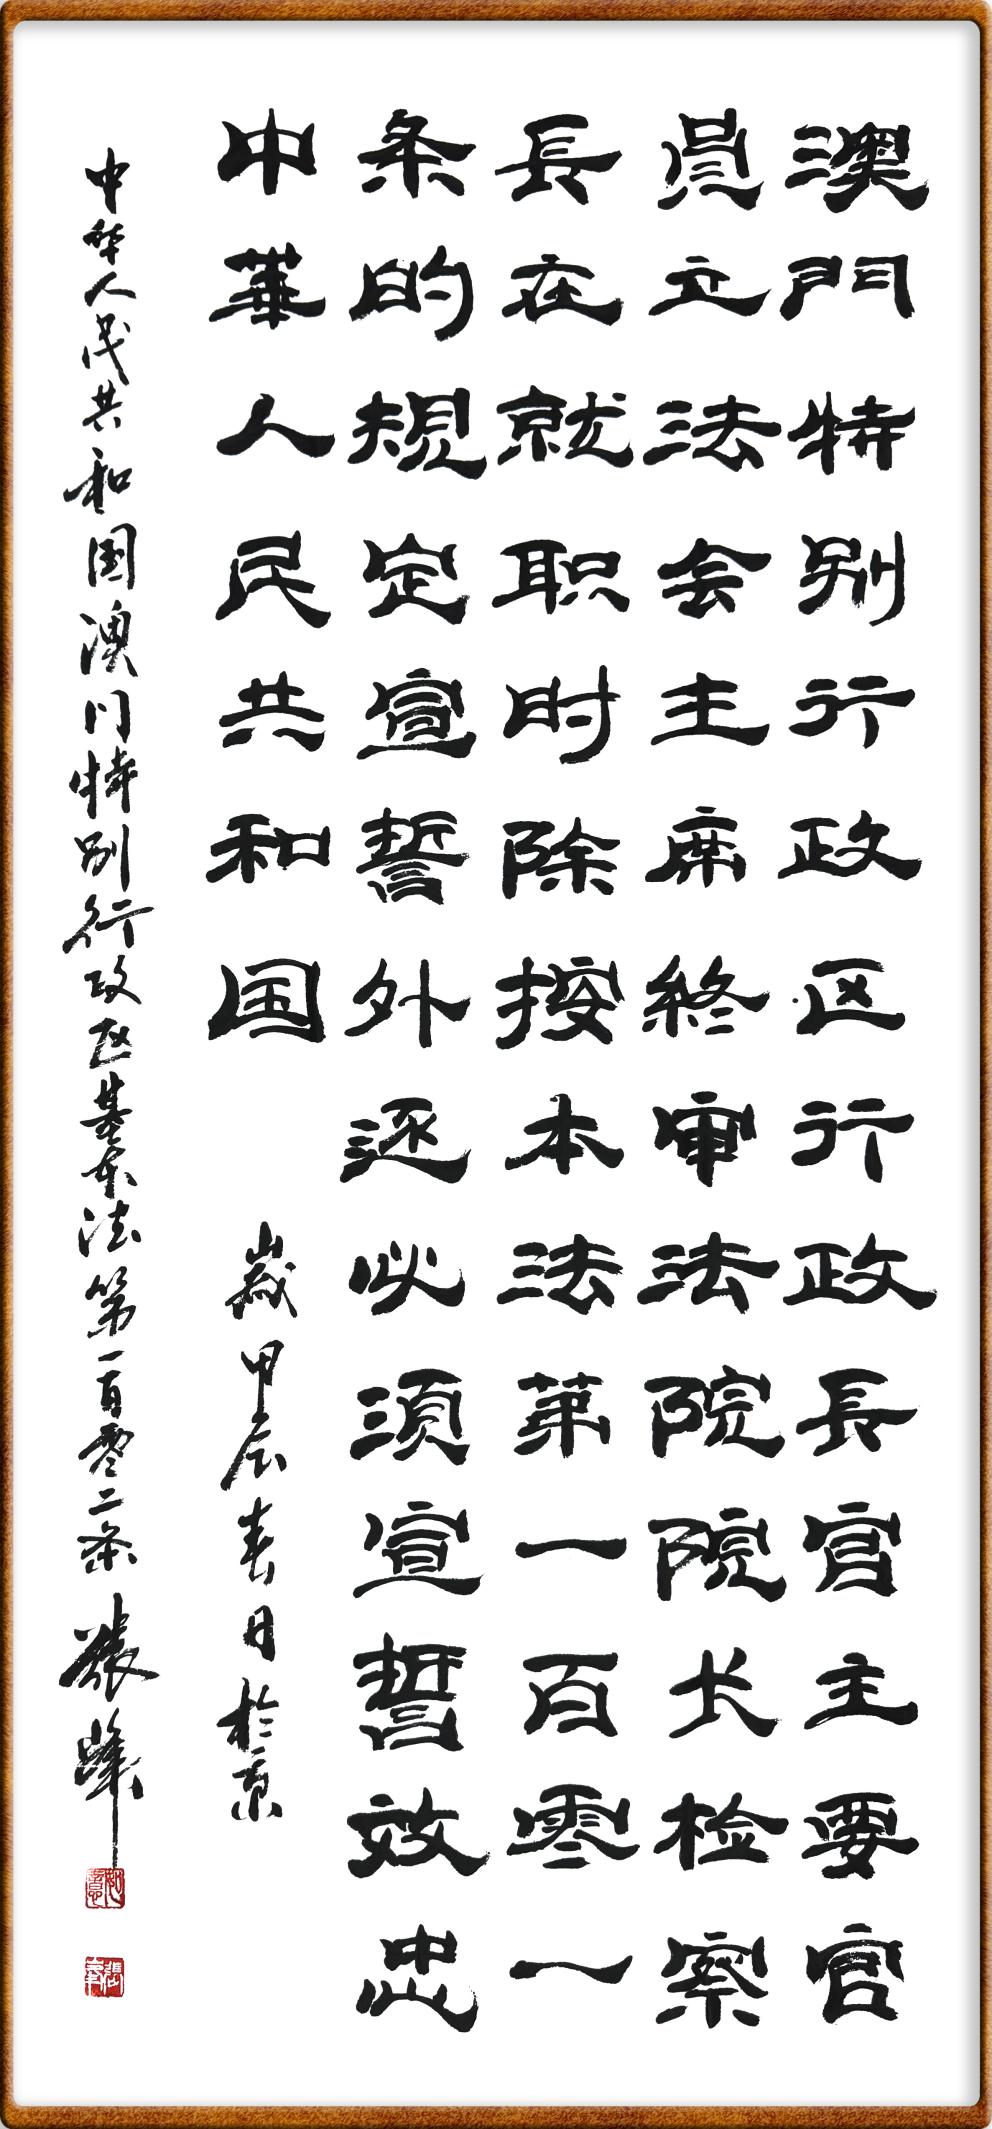 澳門特别行政区行政長官主要官
員立法会主席終审法院院长检察
長在就职时除按本法第一百零一
条的规定宣誓外还必须宣誓效忠
中華人民共和国
歲甲辰春月於京
中华人民共和国澳门特别行政区基本法第一百零二条 張峰
張峰